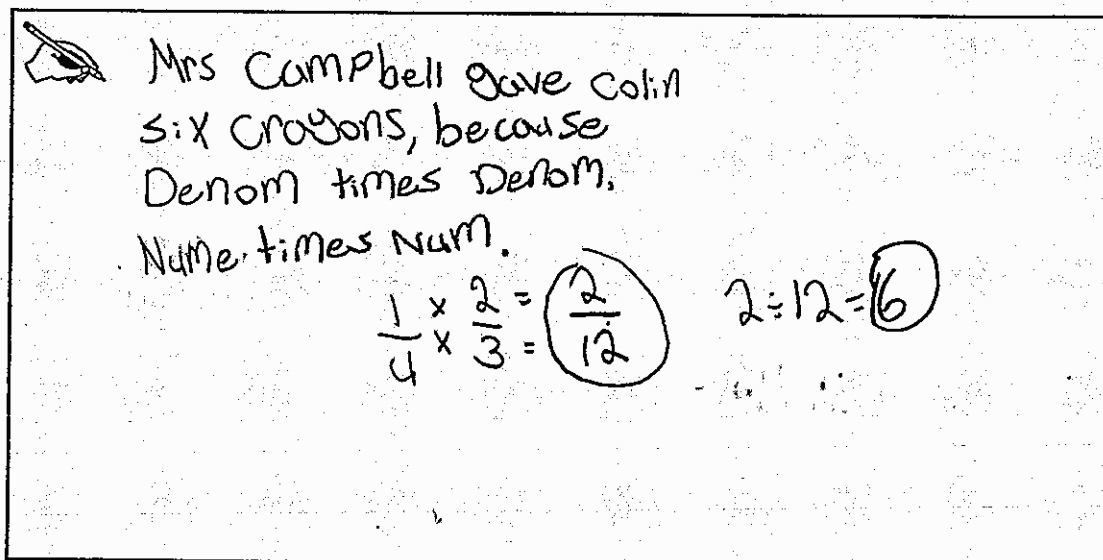 Mrs Campbell gave Colin
six crayons, because
Denom times Denom.
Nume. times Num.
1/4 × 2/3 = 2/12 2÷12=6